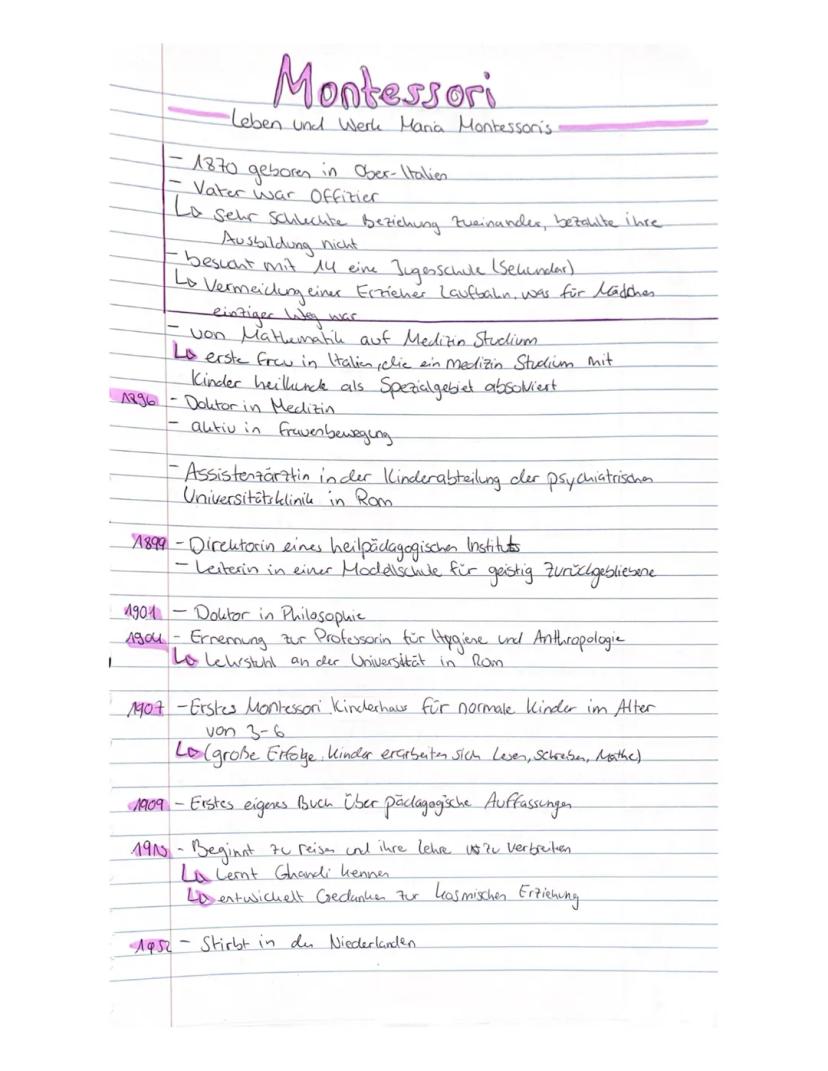 Montessori
Leben und Werk Maria Montessoris
- 1870 geboren in Ober-Italien
- Vater war Offizier
↳ sehr schlechte Beziehung zueinander, bezahlte ihre
Ausbildung nicht
- besucht mit 14 eine Jugesschule (Sekundar)
↳ Vermeidung einer Erzieher Laufbahn, was für Mädchen
einziger Weg war
- von Mathematik auf Medizin Studium
↳ erste Frau in Italien, die ein medizin Studium mit
Kinder heilkunde als Spezialgebiet absolviert
1896 - Doktor in Medizin
- aktiv in Frauenbewegung
- Assistenzärztin in der Kinderabteilung der psychiatrischen
Universitätsklinik in Rom
1899 - Direktorin eines heilpädagogischen Instituts
- Leiterin in einer Modellschule für geistig zurückgebliebene
1901 - Doktor in Philosophie
1904 - Ernennung zur Professorin für Hygiene und Anthropologie
↳ Lehrstuhl an der Universität in Rom
1907 - Erstes Montessori Kinderhaus für normale Kinder im Alter
von 3-6
↳ (große Erfolge, Kinder erarbeiten sich Lesen, Schreiben, Mathe)
1909 - Erstes eigenes Buch Über pädagogische Auffassungen
- Beginnt zu reisen und ihre Lehre zu verbreiten
↳ Lernt Ghandi kennen
↳ entwickelt Gedanken zur kosmischen Erziehung
1952 - Stirbt in den Niederlanden